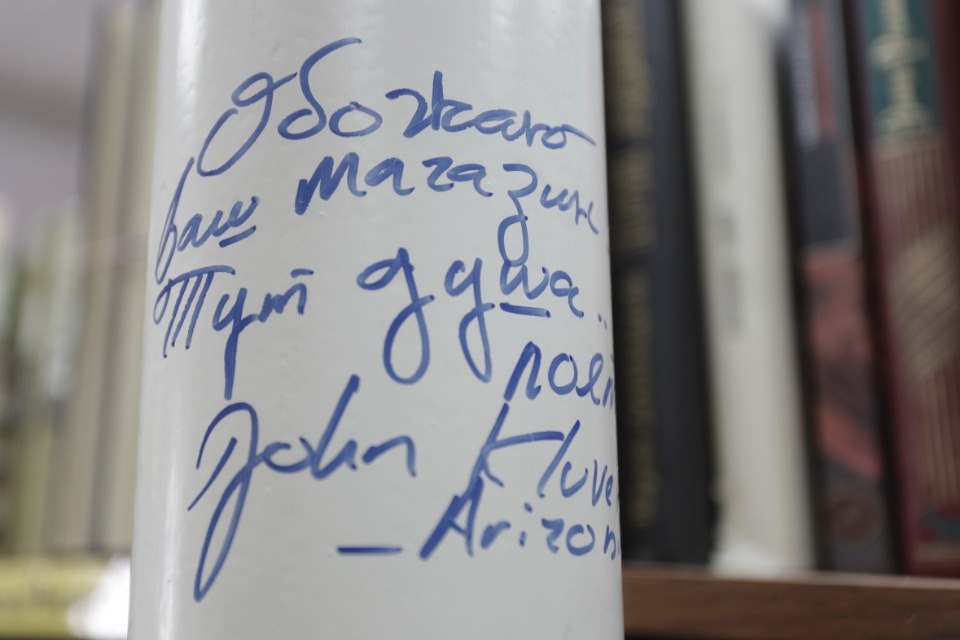 Обожаю
ваш магазин
Тут душа..
поёт
John Kluve
- Arizon